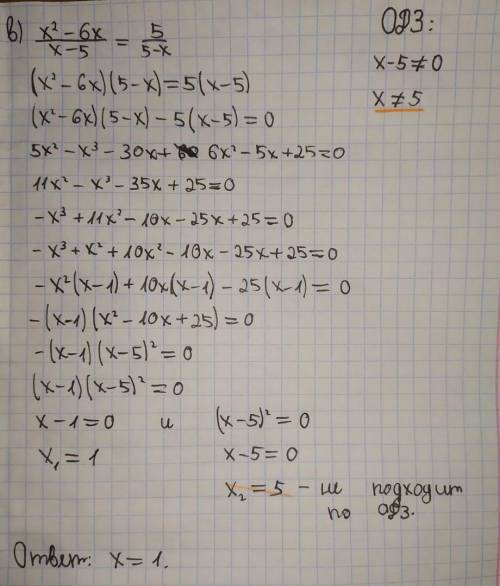 в) (x² - 6x)/(x - 5) = 5/(5 - x)
ОДЗ:
x - 5 ≠ 0
x ≠ 5
(x² - 6x)(5 - x) = 5(x - 5)
(x² - 6x)(5 - x) - 5(x - 5) = 0
5x² - x³ - 30x + 6x² - 5x + 25 = 0
11x² - x³ - 35x + 25 = 0
-x³ + 11x² - 10x - 25x + 25 = 0
-x³ + x² + 10x² - 10x - 25x + 25 = 0
-x²(x - 1) + 10x(x - 1) - 25(x - 1) = 0
-(x - 1)(x² - 10x + 25) = 0
-(x - 1)(x - 5)² = 0
(x - 1)(x - 5)² = 0
x - 1 = 0 и (x - 5)² = 0
x₁ = 1 x - 5 = 0
x₂ = 5 - не подходит
по ОДЗ.
Ответ: x = 1.